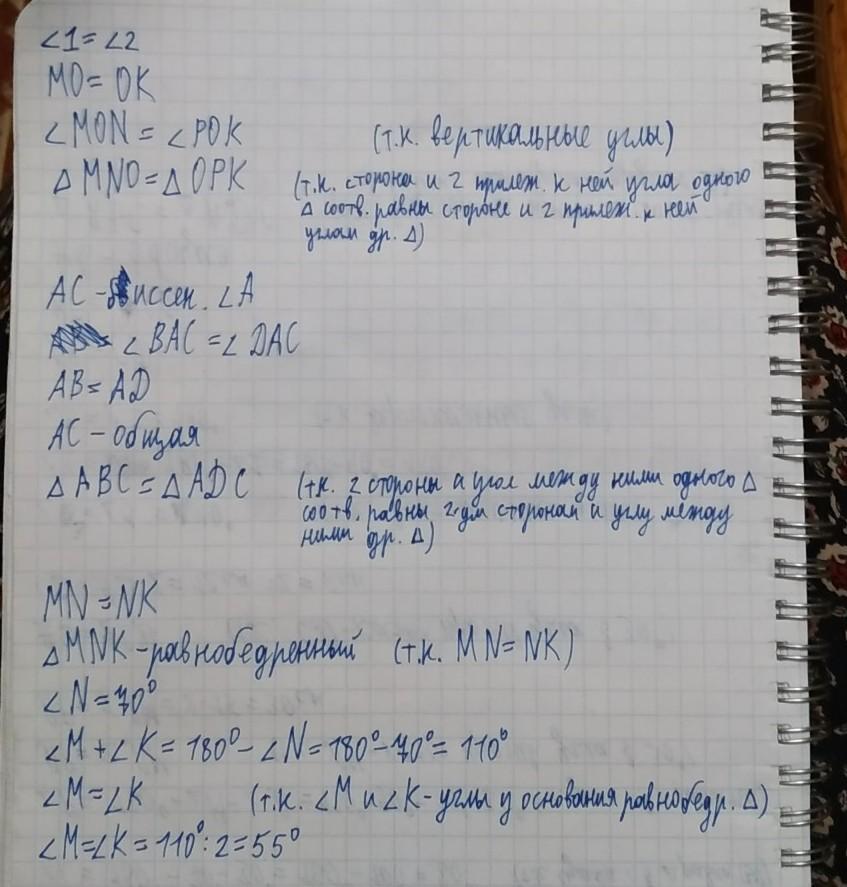 ∠1=∠2
MO=OK
∠MON=∠POK (т.к. вертикальные углы)
△MNO=△OPK (т.к. сторона и 2 прилеж. к ней угла одного
△ соотв. равны стороне и 2 прилеж. к ней
углам др. △)
AC - биссек. ∠A
∠BAC=∠DAC
AB=AD
AC - общая
△ABC=△ADC (т.к. 2 стороны и угол между ними одного △
соотв. равны 2-ум сторонам и углу между
ними др. △)
MN=NK
△MNK - равнобедренный (т.к. MN=NK)
∠N=70°
∠M+∠K=180°-∠N=180°-70°=110°
∠M=∠K (т.к. ∠M и ∠K - углы у основания равнобедр. △)
∠M=∠K=110°:2=55°